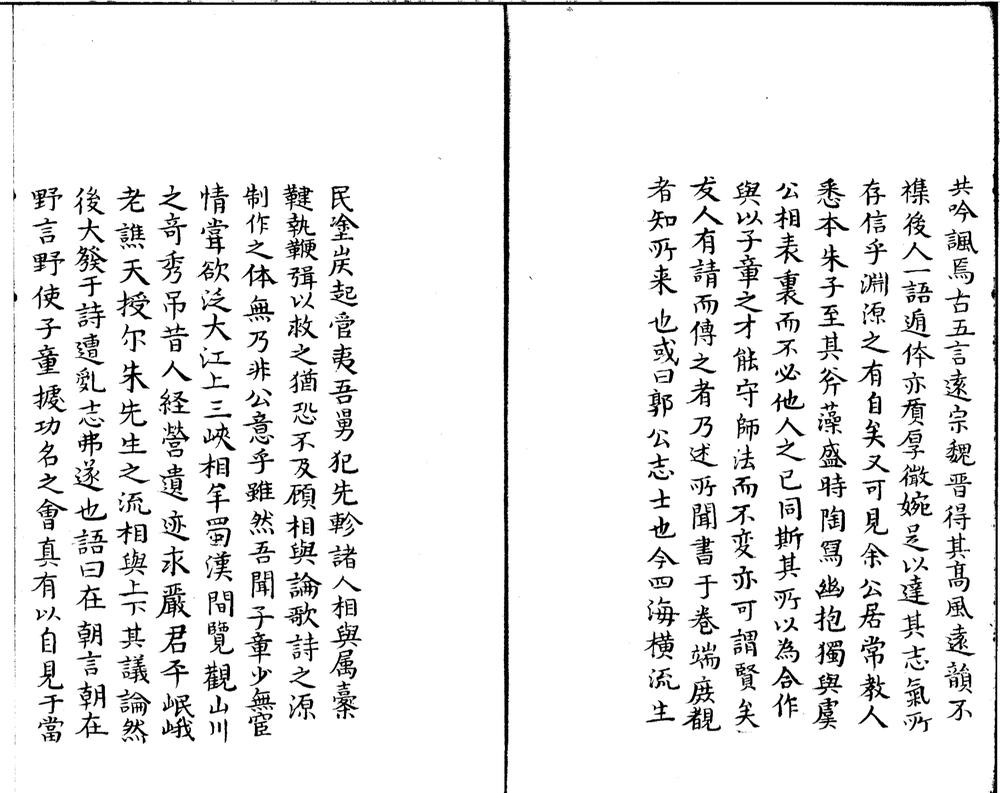 共吟諷焉古五言遠宗魏晋得其髙風遠韻不
襍後人一語適体亦質厚微婉足以達其志氣所
存信乎淵源之有自矣又可見余公居常教人
悉本朱子至其斧藻盛時陶冩幽抱獨與虞
公相表裏而不必他人之已同斯其所以為合作
與以子章之才能守師法而不变亦可謂賢矣
友人有請而傳之者乃述所聞書于卷端庻覩
者知所来也或曰郭公志士也今四海横流生
民塗炭起管夷吾舅犯先軫諸人相與属櫜
鞬執鞭弭以救之猶恐不及顧相與論歌詩之源
制作之体無乃非公意乎雖然吾聞子章少無宦
情甞欲泛大江上三峽相羊蜀漢間覽觀山川
之竒秀吊昔人経營遺迹求嚴君平岷峨
老譙天授尔朱先生之流相與上下其議論然
後大發于詩遭亂志弗遂也語曰在朝言朝在
野言野使子童據功名之會真有以自見于當